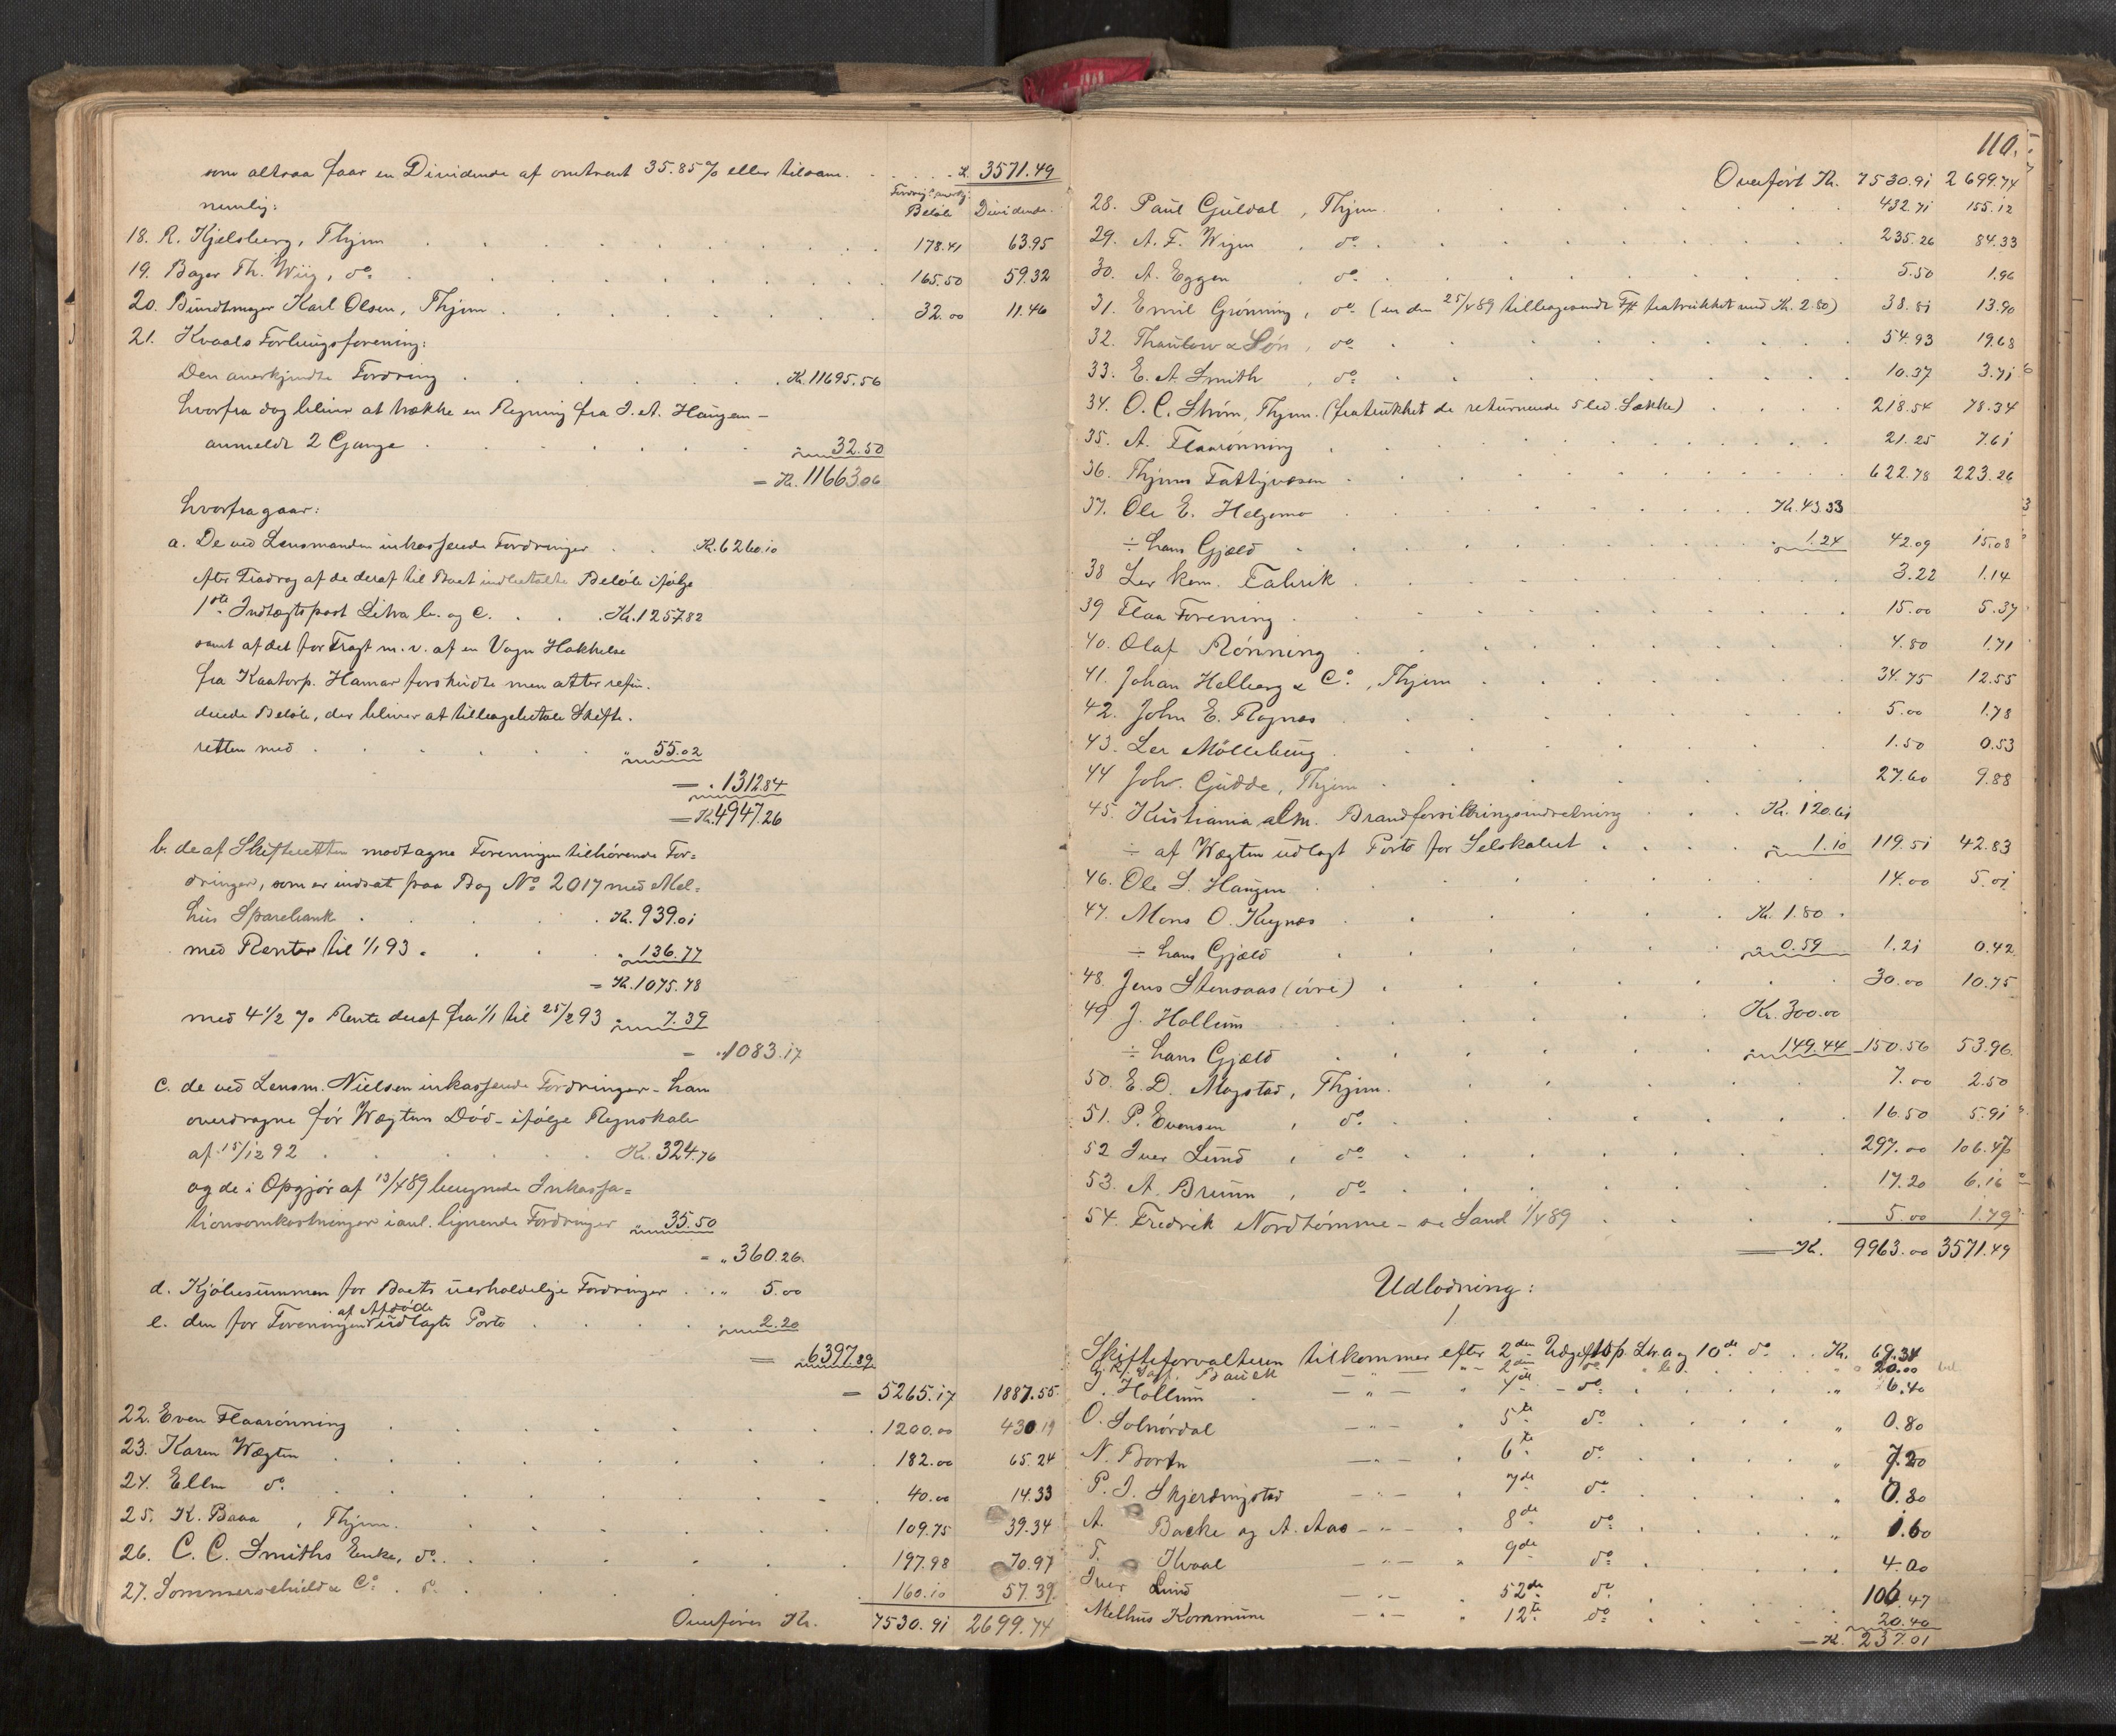 som altsaa faar en Dividende af omtrent 35.85% eller tilsam. . . . . K. 3571.49
nemlig: Fordring. anerkj. Beløb Dividende.
18. R. Kjelsberg, Thjem . . . 178.41 63.95
19. Bager Th. Wiig, do. . . . 165.50 59.32
20. Bundtmager Karl Olsen, Thjem . . . 32.00 11.46
21. Kvaals Forbrugsforening:
Den anerkjendte Fordring . . . Kr. 11695.56
hvorfra dog bliver at trække en Regning fra I. A. Haugen –
anmeldt 2 Gange . . . " 32.50
= Kr. 11663.06
hvorfra gaar:
a. De ved Lensmanden inkasserede Fordringer . . Kr. 6260.10
efter Fradrag af de deraf til Boet indbetalte Beløb ifølge
1ste Indtægtspost Litra b. og c. . . . Kr. 1257.82
samt af det for Fragt m. v. af en Vogn Hakkelse
fra Kaatorp. Hamar forskudte men atter refun-
derede Beløb, der bliver at tilbagebetale Skifte-
retten med . . . " 55.02
= " 1312.84
= Kr. 4947.26
b. de af Skifteretten modtagne Foreningen tilhørende For=
dringer, som er indsat paa Bog No 2017 med Mel=
hus Sparebank . . . Kr. 939.01
med Renter til 1/1 93 . . . " 136.77
= Kr. 1075.78
med 4 1/2 % Rente deraf fra 1/1 til 25/2 93 " 7.39
= " 1083.17
c. de ved Lensm. Nielsen inkasserede Fordringer – ham
overdragne før Wægtens Død – ifølge Regnskab
af 15/12 92 . . . Kr. 324.76
og de i Opgjør af 13/4 89 beregnede Inkassa=
tionsomkostninger i anl. lignende Fordringer " 35.50
= " 360.26
d. Kjøbesummen for Boets uerholdelige Fordringer . . " 5.00
e. den for Foreningen af Afdøde udlagte Porto . . . " 2.20
= " 6397.89
= 5265.17 1887.55
22. Even Flaarønning . . . 1200.00 430.19
23. Karen Wægten . . . 182.00 65.24
24. Ellen do. . . . 40.00 14.33
25. K. Baaa , Thjem. . . . 109.75 39.34
26. C. C. Smiths Enke, do. . . . 197.98 70.97
27. Sommerschield & Co. . do. . . . 160.10 57.39
Overføres Kr. 7530.91 2699.74
110.
Overført Kr. 7530.91 2699.74
28. Paul Guldal , Thjem. . . . 432.71 155.12
29. A. F. Wigen , do. . . . 235.26 84.33
30. A. Eggen do. . . . 5.50 1.96
31. Emil Grønning, do. (en den 25/4 89 tilbagesendt F# fratrukket med Kr. 2.80) 38.81 13.90
32. Thaulow & Søn , do. . . . 54.93 19.68
33. E. A. Smith , do. . . . 10.37 3.71
34. O. C. Strøm, Thjem. (fratrukket de returnerede 5 led. Sække) . . . 218.54 78.34
35. A. Flaarønning . . . 21.25 7.61
36. Thjems Fattigvæsen . . . 622.78 223.26
37. Ole E. Helgemo . . . Kr. 43.33
÷ hans Gjæld . . . " 1.24 42.09 15.08
38 Ler kem. Fabrik . . . 3.22 1.14
39 Flaa Forening . . . 15.00 5.37
40. Olaf Rønning . . . 4.80 1.71
41. Johan Helberg & Co. , Thjem . . . 34.75 12.55
42. John E. Rognæs . . . 5.00 1.78
43. Ler Møllebrug . . . 1.50 0.53
44 Joh. Gudde, Thjem . . . 27.60 9.88
45. Kristiania alm. Brandforsikringsindretning . . . Kr. 120.61
÷ af Wægten udlagt Porto for Selskabet . . . " 1.10 119.51 42.83
46. Ole L. Haugen . . . 14.00 5.01
47. Mons O. Krignæs . . . Kr. 1.80
÷ hans Gjæld . . . " 0.59 1.21 0.42
48. Jens Stensaas (øvre) . . . 30.00 10.75
49 J. Hollum . . . Kr. 300.00
÷ hans Gjæld . . . " 149.44 150.56 53.96
50. E. D. Mogstad, Thjem. . . . 7.00 2.50
51. P. Evensen , do. . . . 16.50 5.91
52 Iver Lund , do. . . . 297.00 106.47
53. A. Bruun , do. . . . 17.20 6.16
54. Fredrik Nordtømme – se Sand 1/4 89 . . . 5.00 1.79
= K. 9963.00 3571.49
Udlodning:
Skifteforvalteren tilkommer efter 2den Udgiftsp. Litr. a og 10de do. . . Kr. 69.34
" 2den do " b. . . . " 20.00
J. Hollum – " – " 4de – do. . . . " 6.40
O. Solnørdal – " – " 5te do. . . . " 0.80
N. Borten – " – " 6te do. . . . " 7.20
P. I. Skjerdingstad – " – " 7de do. . . . " 0.80
A. Backe og A. Aas – " – " 8de do. . . . " 1.60
T. Kvaal – " – " 9de do. . . . 4.00
Iver Lund – " – " 52de do. . . . 106.47
Melhus Kommune – " – " 12te do. . . . 20.40
= K. 237.01